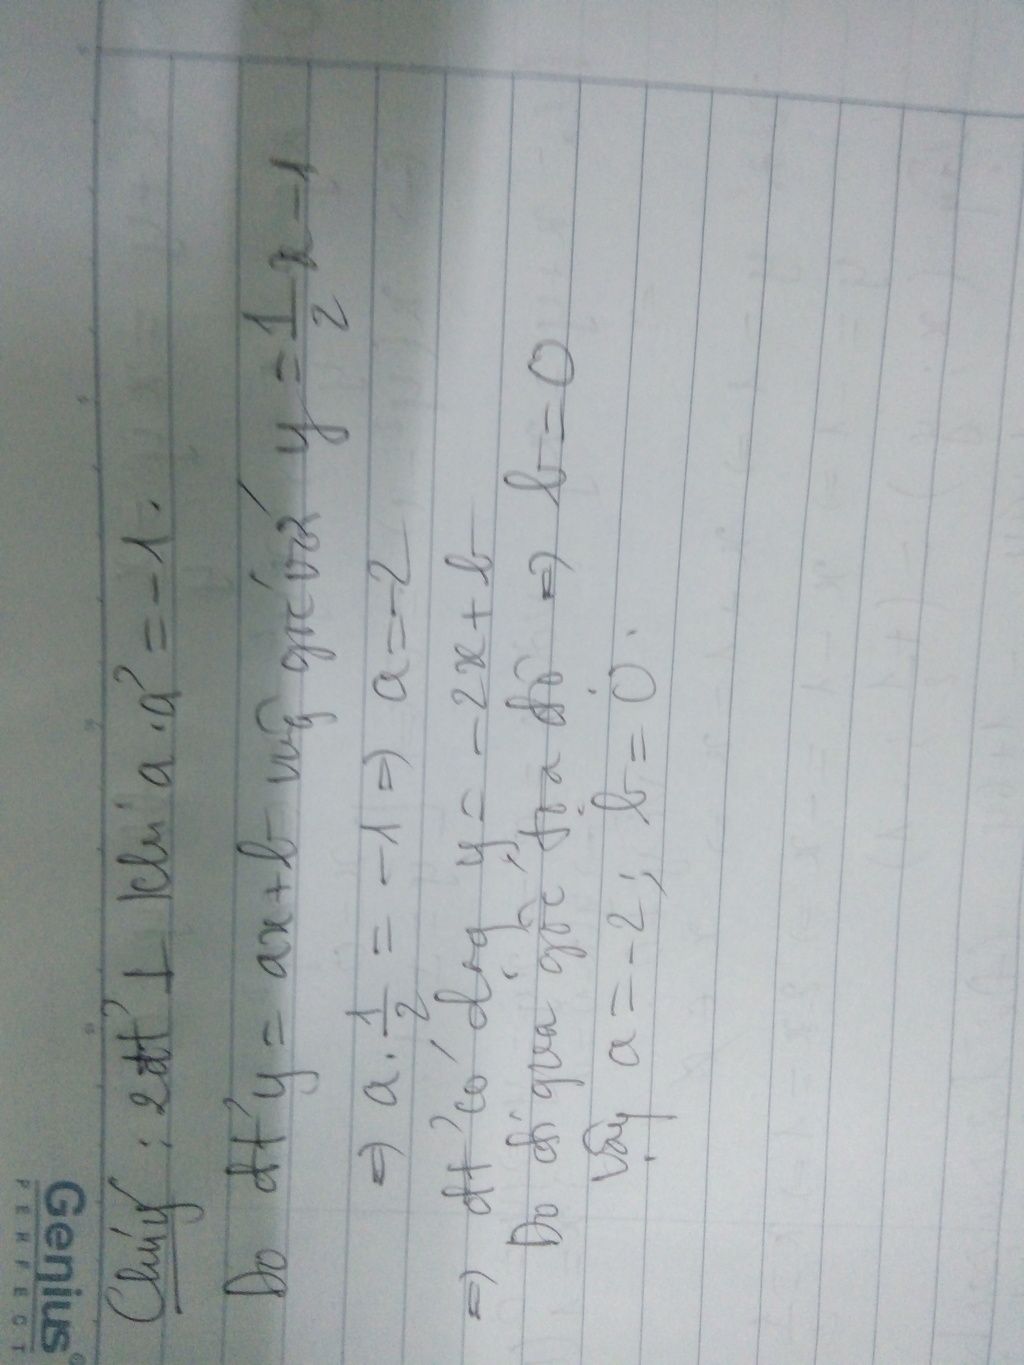 Genius
PERFECT
Chú ý : 2đt' ⊥ khi a.a' = -1.
Do đt' y = ax+b vug góc với y = 1/2 x - 1
⇒ a. 1/2 = -1 ⇒ a = -2
⇒ đt' có dạng y = -2x + b
Do đi qua gốc tọa độ ⇒ b = 0
Vậy a = -2; b = 0.